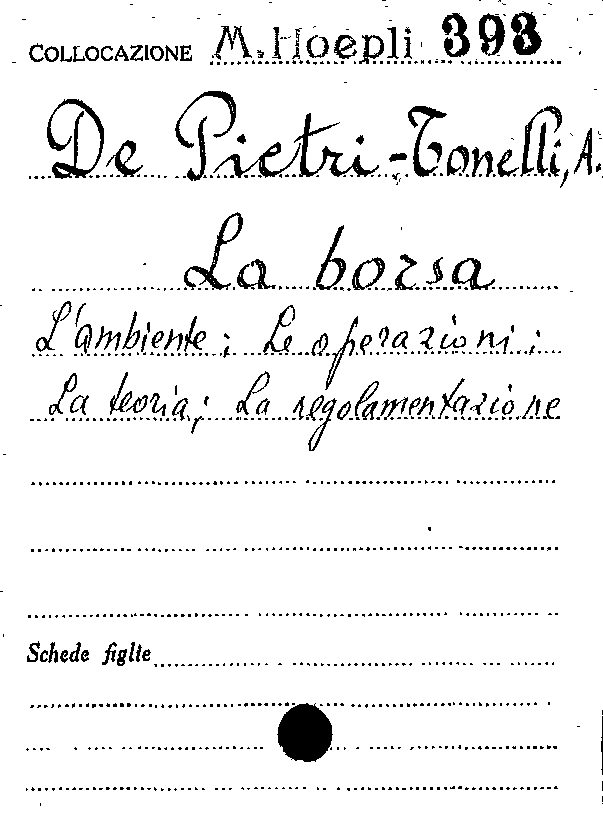 COLLOCAZIONE M. Hoepli 393
De Pietri-Tonelli, A.
La borsa
L'ambiente; Le operazioni;
La teoria; La regolamentazione
Schede figlie